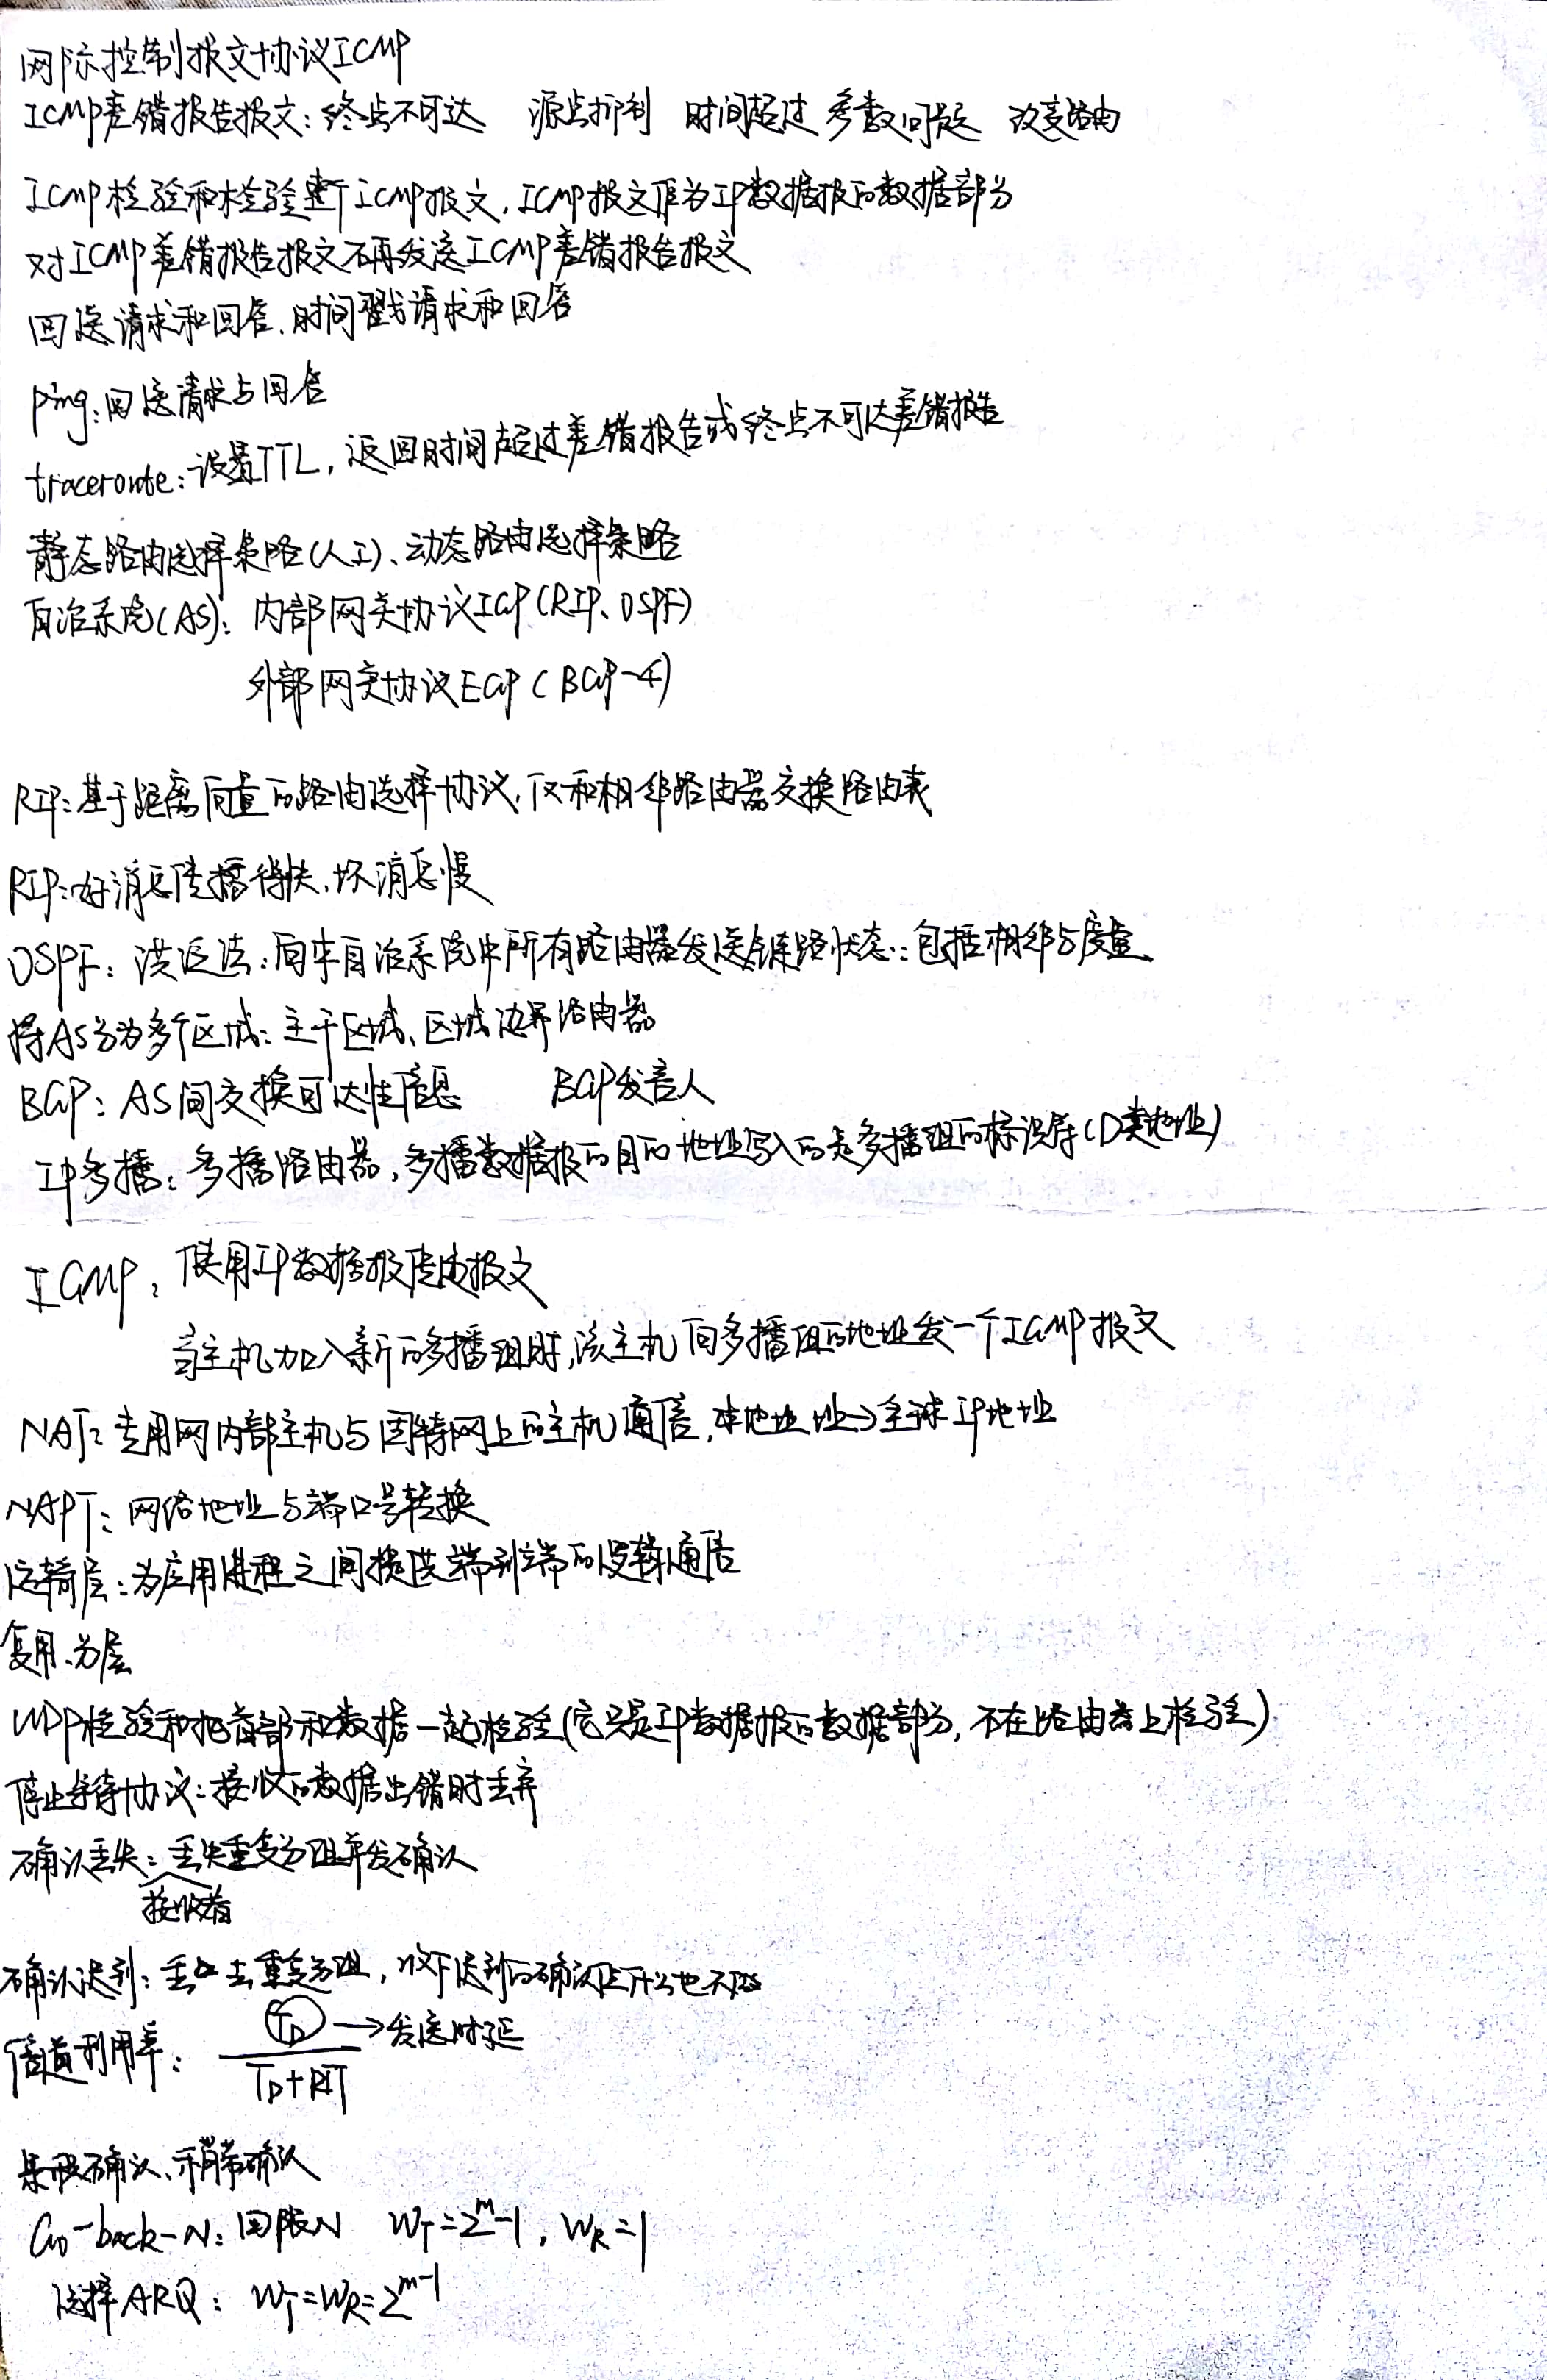 网际控制报文协议ICMP
ICMP差错报告报文：终点不可达 源点抑制 时间超过 参数问题 改变路由
ICMP检验和检验整个ICMP报文，ICMP报文作为IP数据报的数据部分
对ICMP差错报告报文不再发送ICMP差错报告报文
回送请求和回答、时间戳请求和回答
ping：回送请求与回答
traceroute：设置TTL，返回时间超过差错报告或终点不可达差错报告
静态路由选择策略(人工)、动态路由选择策略
自治系统(AS)：内部网关协议IGP(RIP、OSPF)
外部网关协议EGP(BGP-4)
RIP：基于距离向量的路由选择协议，仅和相邻路由器交换路由表
RIP：好消息传播得快，坏消息慢
OSPF：洪泛法：向本自治系统中所有路由器发送链路状态：包括相邻与度量
将AS分为多个区域：主干区域、区域边界路由器
BGP：AS间交换可达性信息 BGP发言人
IP多播：多播路由器，多播数据报的目的地址写入的是多播组的标识号(D类地址)
IGMP：使用IP数据报传递报文
当主机加入新的多播组时，该主机向多播组的地址发一个IGMP报文
NAT：专用网内部主机与因特网上的主机通信，本地地址→全球IP地址
NAPT：网络地址与端口号转换
运输层：为应用进程之间提供端到端的逻辑通信
复用、分层
UDP检验和把首部和数据一起检验(它只是IP数据报的数据部分，不在路由器上检验)
停止等待协议：接收的数据出错时丢弃
确认丢失：丢失重复分组并发确认
接收者
确认迟到：丢去重复分组，收下迟到的确认但什么也不做
信道利用率： TD →发送时延
TD+RTT
累积确认、捎带确认
Go-back-N：回退N WT=2^m-1，WR=1
选择ARQ：WT=WR=2^m-1